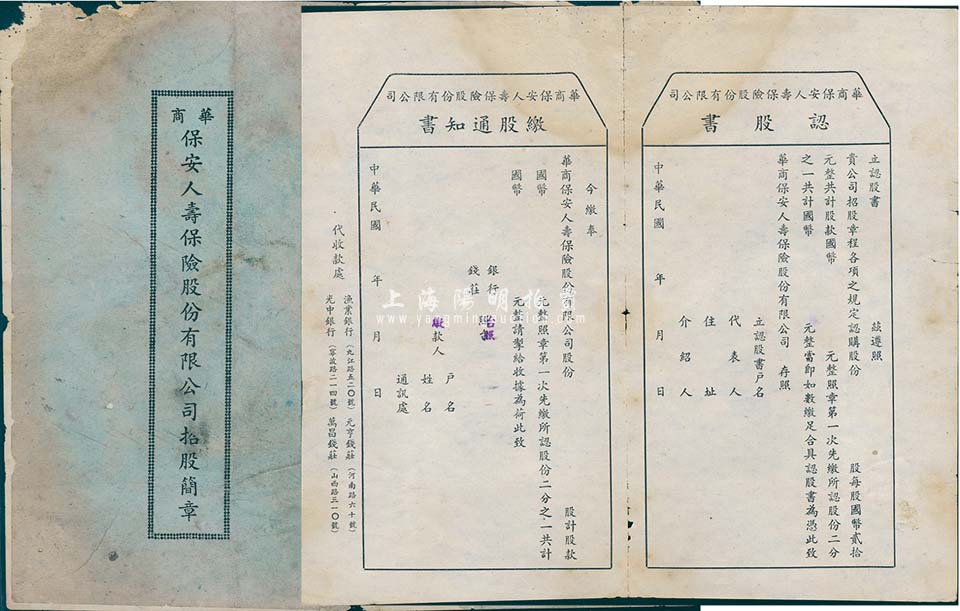 華商
保安人壽保險股份有限公司招股簡章
華商保安人壽保險股份有限公司
認股書
立認股書 茲遵照
貴公司招股章程各項之規定認購股份 股每股國幣貳拾
元整共計股款國幣 元整照章第一次先繳所認股份二分
之一共計國幣 元整當即如數繳足合具認股書為憑此致
華商保安人壽保險股份有限公司 存照
立認股書戶名
代表人
住址
介紹人
中華民國 年 月 日
華商保安人壽保險股份有限公司
繳股通知書
今繳奉
華商保安人壽保險股份有限公司股份 股計股款
國幣 元整照章第一次先繳所認股份二分之一共計
國幣 元整請掣給收據為荷此致
銀行
錢莊 台照
繳款人 戶名
姓名
通訊處
中華民國 年 月 日
代收款處
漁業銀行(九江路五二〇號) 元亨錢莊(河南路六十號)
光中銀行(寧波路二一四號) 萬昌錢莊(山西路三一〇號)
上海陽明拍賣
www.yangmingauction.com